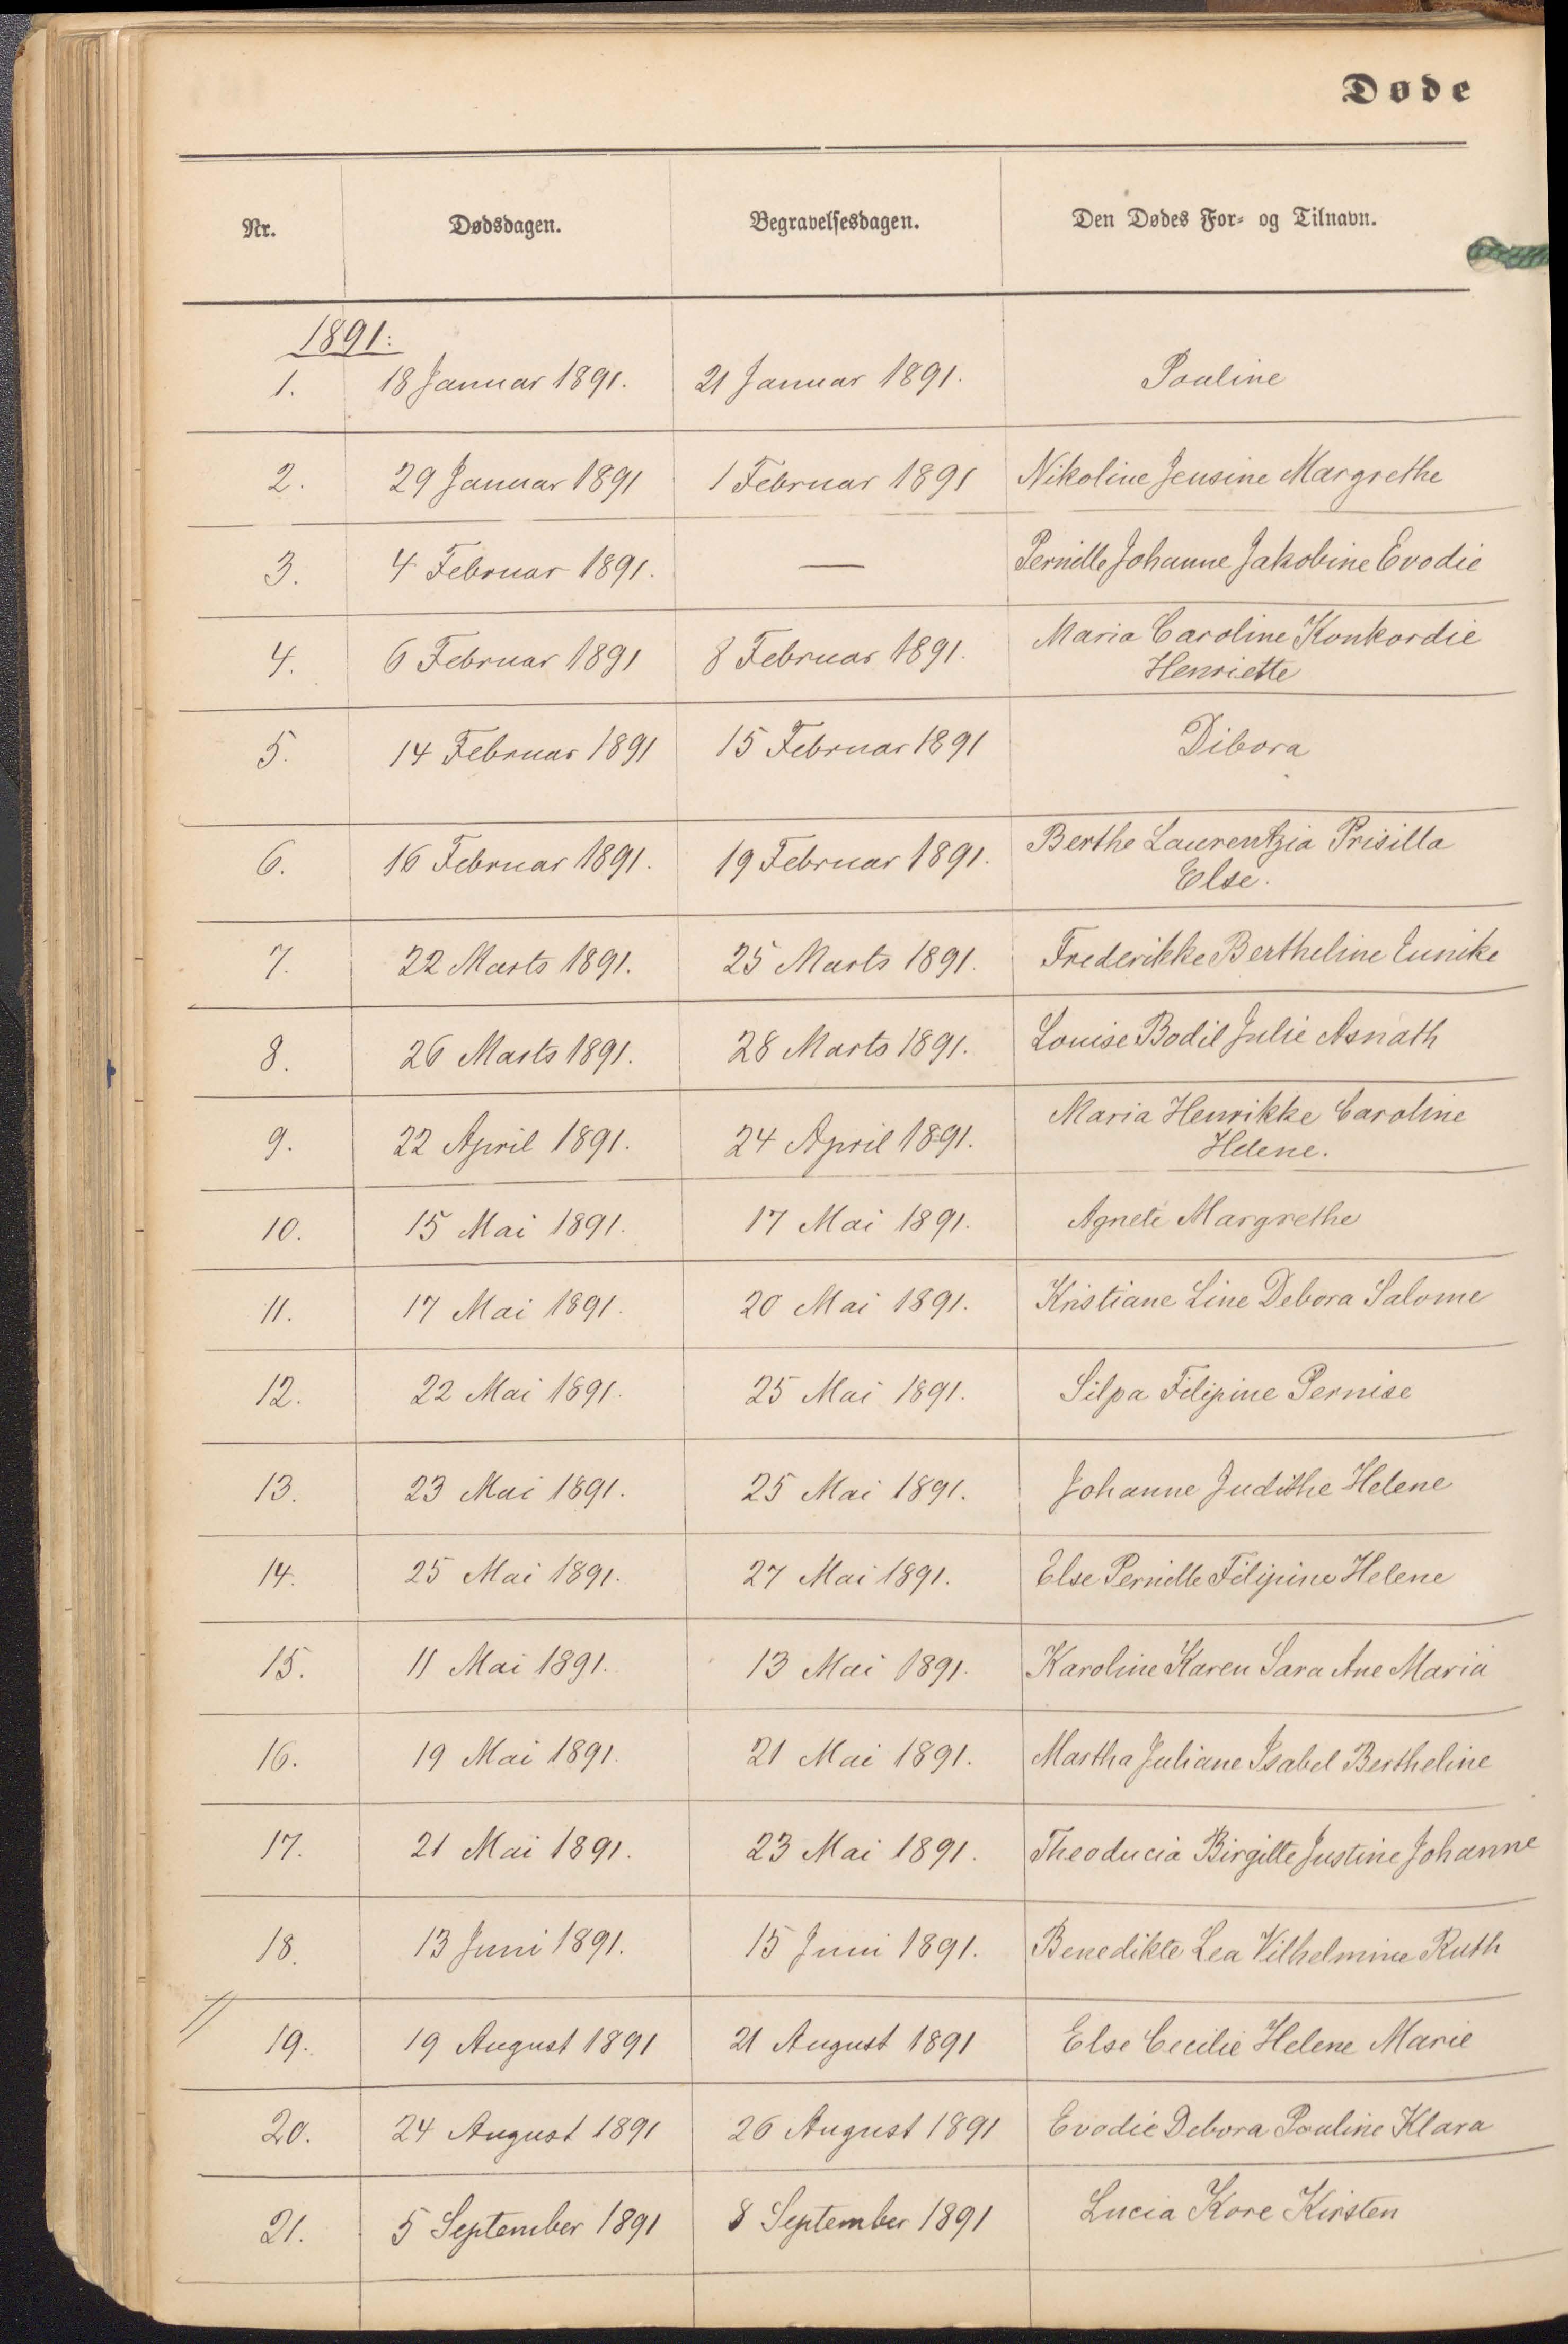 Døde
Nr. Dødsdagen. Begravelsesdagen. Den Dødes For- og Tilnavn.
1891:
1. 18 Januar 1891. 21 Januar 1891. Pouline
2. 29 Januar 1891 1 Februar 1891 Nikoline Jensine Margrethe
3. 4 Februar 1891. — Pernille Johanne Jakobine Evodie
4. 6 Februar 1891 8 Februar 1891. Maria Caroline Konkordie
Henriette
5. 14 Februar 1891 15 Februar 1891 Dibora
6. 16 Februar 1891. 19 Februar 1891. Berthe Laurentzia Prisilla
Else.
7. 22 Marts 1891. 25 Marts 1891. Frederikke Bertheline Eunike
8. 26 Marts 1891. 28 Marts 1891. Louise Bodil Julie Asnath
9. 22 April 1891. 24 April 1891. Maria Henrikke Caroline
Helene.
10. 15 Mai 1891. 17 Mai 1891. Agnete Margrethe
11. 17 Mai 1891. 20 Mai 1891. Kristiane Line Debora Salome
12. 22 Mai 1891. 25 Mai 1891. Silpa Filipine Pernise
13. 23 Mai 1891. 25 Mai 1891. Johanne Judithe Helene
14. 25 Mai 1891. 27 Mai 1891. Else Pernille Filipine Helene
15. 11 Mai 1891. 13 Mai 1891. Karoline Karen Sara Ane Maria
16. 19 Mai 1891. 21 Mai 1891. Martha Juliane Isabel Bertheline
17. 21 Mai 1891. 23 Mai 1891. Theoducia Birgitte Justine Johanne
18. 13 Juni 1891. 15 Juni 1891. Benedikte Lea Vilhelmine Ruth
19. 19 August 1891 21 August 1891 Else Cecilie Helene Marie
20. 24 August 1891 26 August 1891 Evodie Debora Pouline Klara
21. 5 September 1891 8 September 1891 Lucia Kore Kirsten